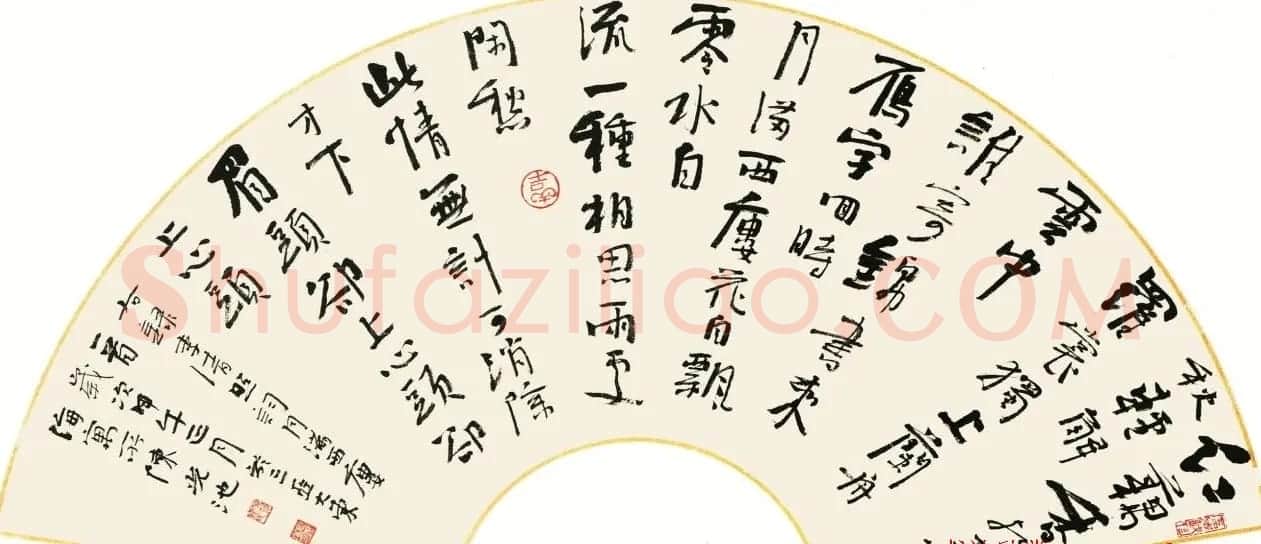 紅藕香
秋輕解
羅裳獨上蘭舟
雲中
誰寄錦書來
雁字回時
月滿西樓花自飄
零水自
流一種相思兩處
閒愁
此情無計可消除
才下
眉頭卻上心頭卻
上心頭
右錄李清照詞月滿西樓
一首
歲次甲午三月於三亞
陳光池
Shufaziliao.COM